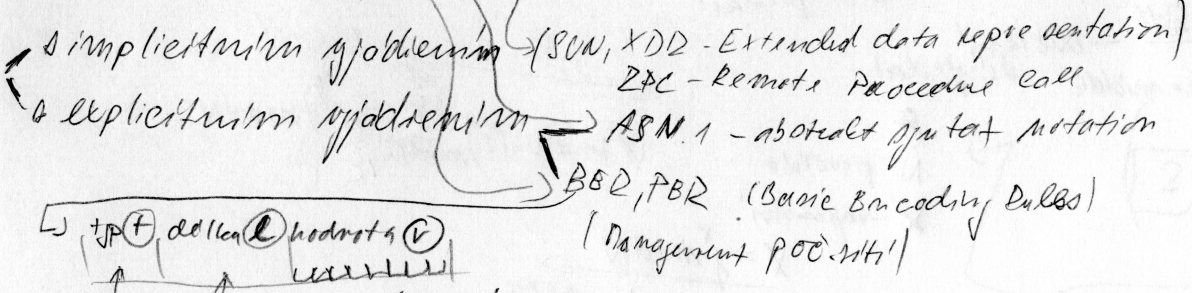 s implicitním vyjádřením (SUN, XDR - Extended data representation)
RPC - Remote Procedure call
s explicitním vyjádřením ASN.1 - abstrakt syntax notation
BER, PER (Basic Encoding Rules)
typ (t), délka (l) hodnota (v)
(Management poč. sítí)